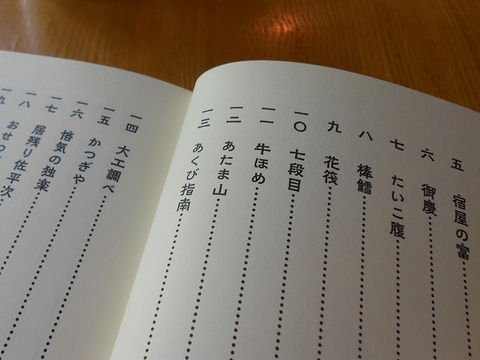 五 宿屋の富
六 御慶
七 たいこ腹
八 棒鱈
九 花筏
一〇 七段目
一一 牛ほめ
一二 あたま山
一三 あくび指南
一四 大工調べ
一五 かつぎや
一六 悋気の独楽
一七 居残り佐平次
一八 おせつ
一九